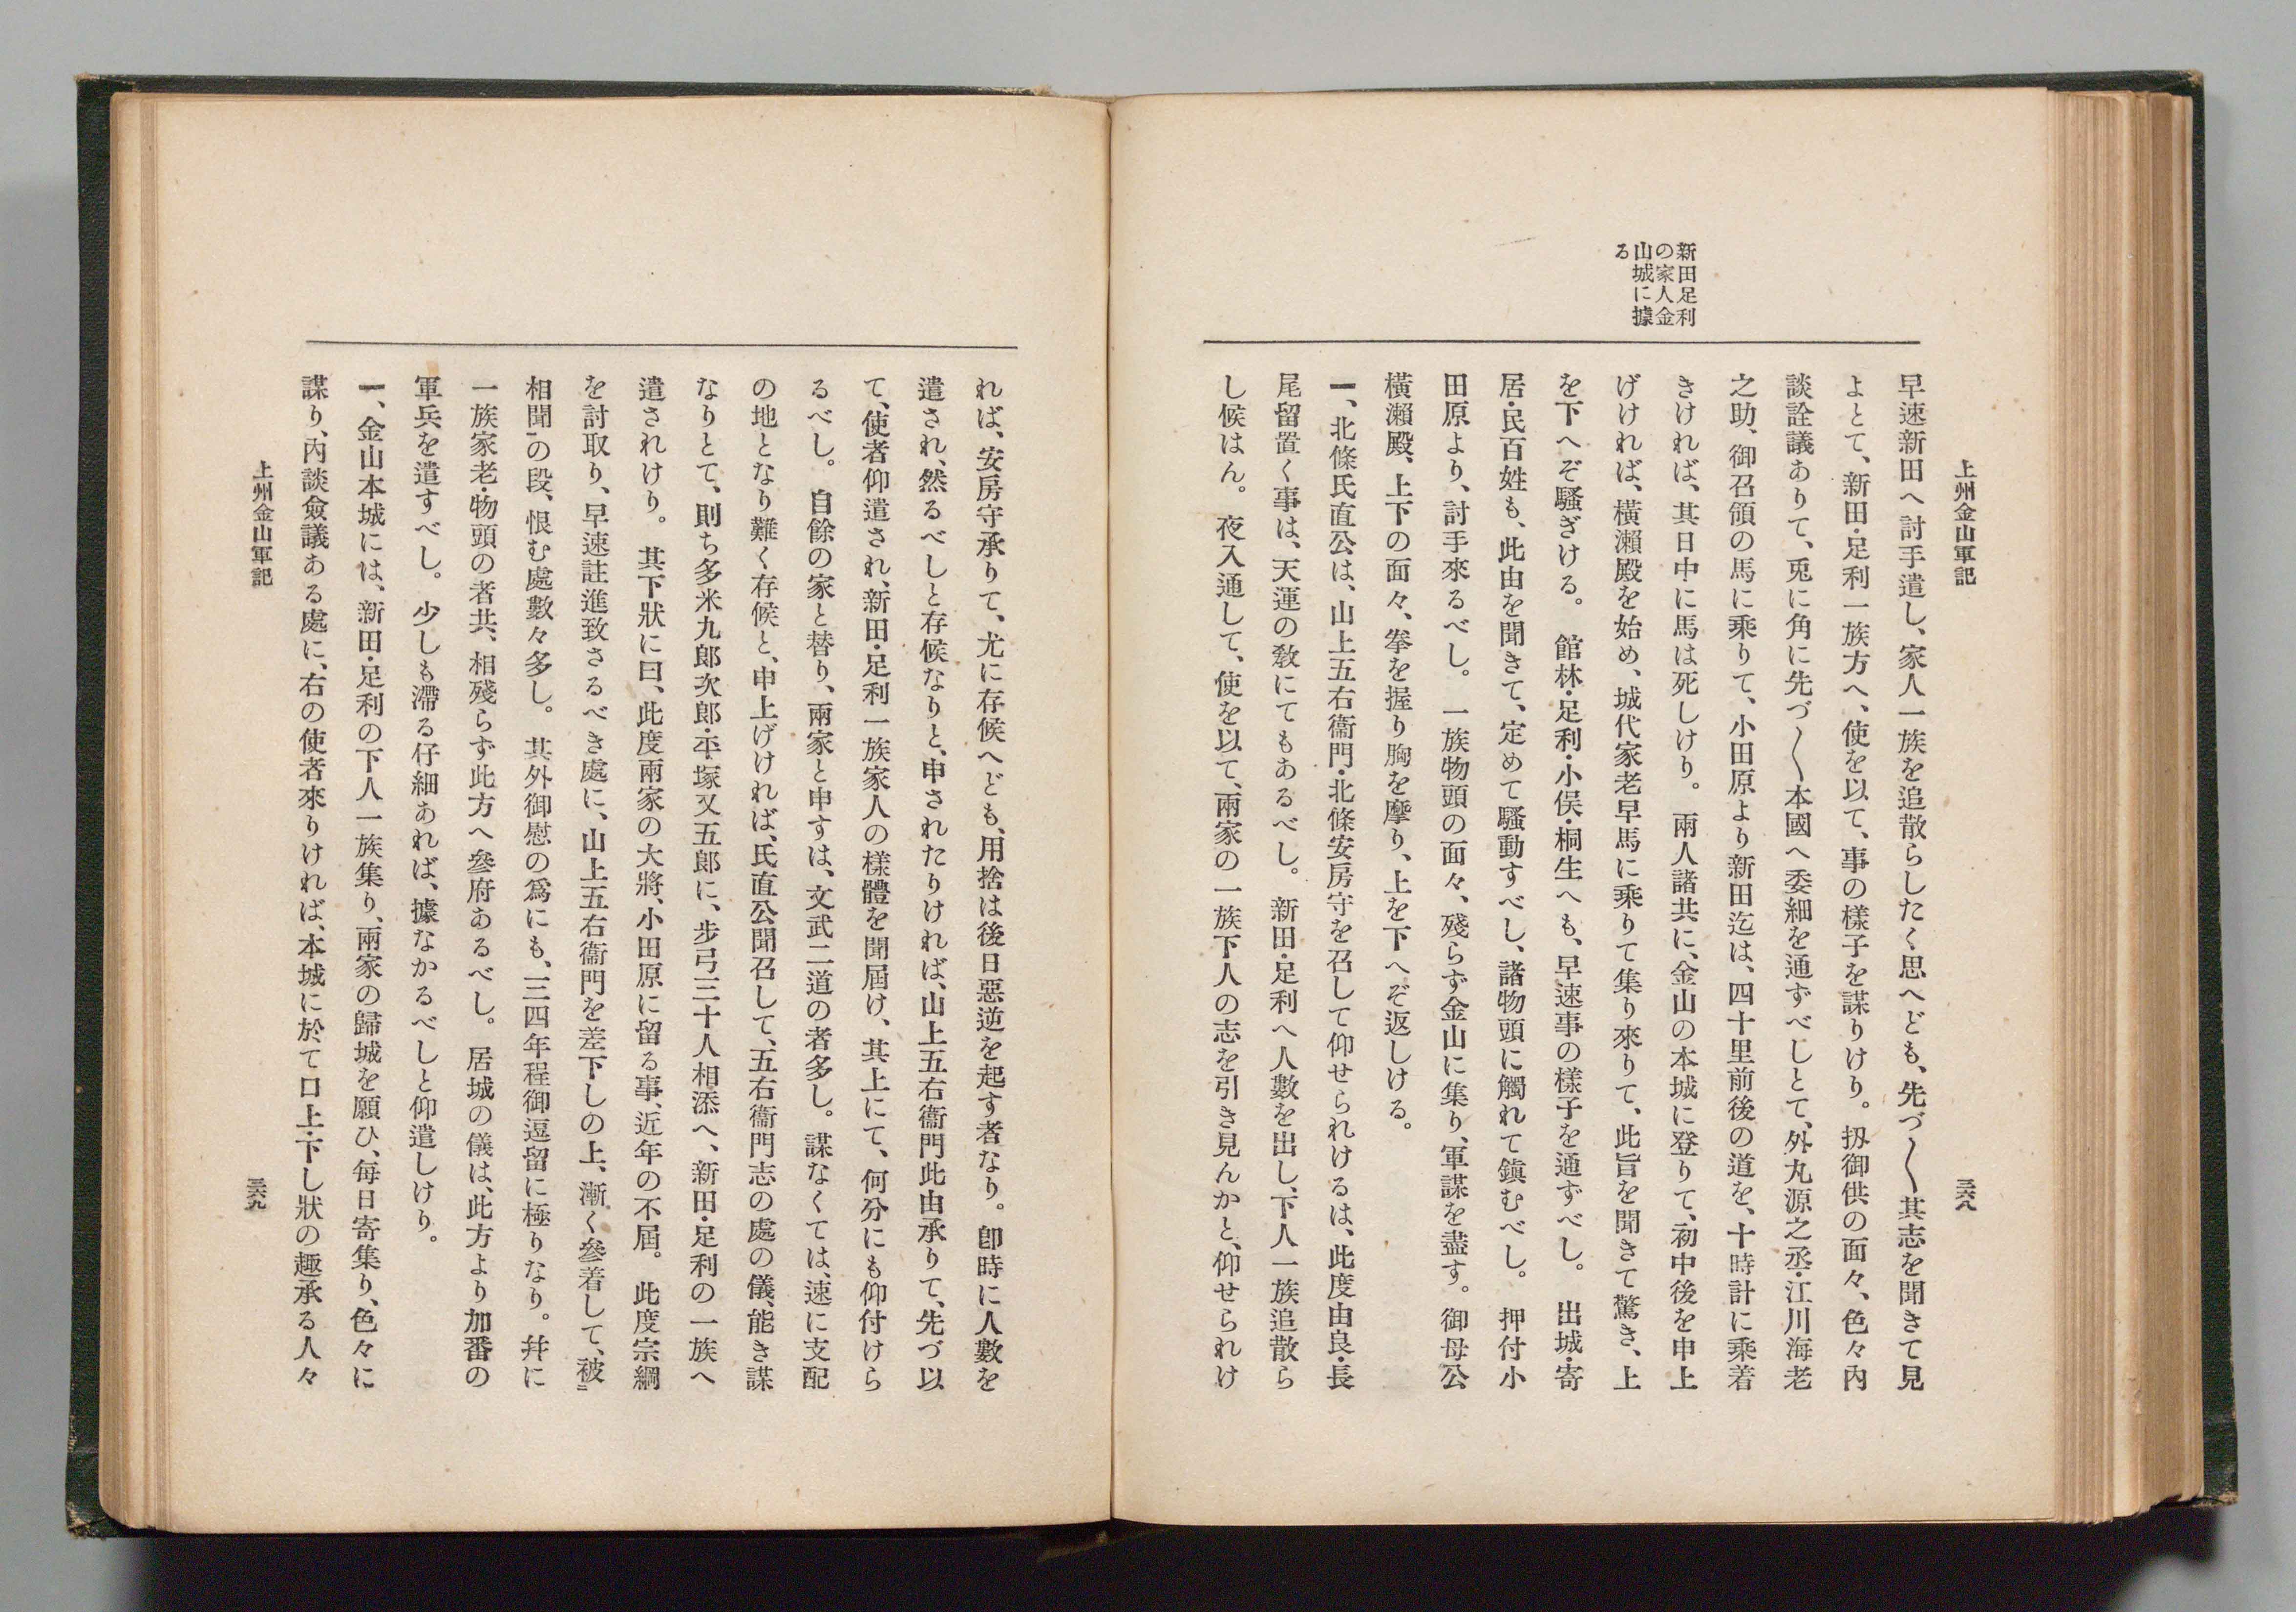 上州金山軍記
三六八
新田足利
の家人金
山城に據
る
早速新田へ討手遣し、家人一族を追散らしたく思へども、先づ〳〵其志を聞きて見
よとて、新田・足利一族方へ、使を以て、事の樣子を謀りけり。扨御供の面々、色々內
談詮議ありて、兎に角に先づ〳〵本國へ委細を通ずべしとて、外丸源之丞・江川海老
之助、御召領の馬に乘りて、小田原より新田迄は、四十里前後の道を、十時計に乘着
きければ、其日中に馬は死しけり。兩人諸共に、金山の本城に登りて、初中後を申上
げければ、橫瀨殿を始め、城代家老早馬に乘りて集り來りて、此旨を聞きて驚き、上
を下へぞ騷ぎける。館林・足利・小俣・桐生へも、早速事の樣子を通ずべし。出城・寄
居・民百姓も、此由を聞きて、定めて騷動すべし、諸物頭に觸れて鎭むべし。押付小
田原より、討手來るべし。一族物頭の面々、殘らず金山に集り、軍謀を盡す。御母公
橫瀨殿、上下の面々、拳を握り胸を摩り、上を下へぞ返しける。
一、北條氏直公は、山上五右衞門・北條安房守を召して仰せられけるは、此度由良・長
尾留置く事は、天運の敎にてもあるべし。新田・足利へ人數を出し、下人一族追散ら
し候はん。夜入通して、使を以て、兩家の一族下人の志を引き見んかと、仰せられけ
れば、安房守承りて、尤に存候へども、用捨は後日惡逆を起す者なり。卽時に人數を
遣され、然るべしと存候なりと、申されたりければ、山上五右衞門此由承りて、先づ以
て、使者仰遣され、新田・足利一族家人の樣體を聞屆け、其上にて、何分にも仰付けら
るべし。自餘の家と替り、兩家と申すは、文武二道の者多し。謀なくては、速に支配
の地となり難く存候と、申上げければ、氏直公聞召して、五右衞門志の處の儀、能き謀
なりとて、則ち多米九郎次郎・平塚又五郎に、步弓三十人相添へ、新田・足利の一族へ
遣されけり。其下狀に曰、此度兩家の大將、小田原に留る事、近年の不屆。此度宗綱
を討取り、早速註進致さるべき處に、山上五右衞門を差下しの上、漸く參着して、被㆓
相聞㆒の段、恨む處數々多し。其外御慰の爲にも、三四年程御逗留に極りなり。幷に
一族家老・物頭の者共、相殘らず此方へ參府あるべし。居城の儀は、此方より加番の
軍兵を遣すべし。少しも滯る仔細あれば、據なかるべしと仰遣しけり。
一、金山本城には、新田・足利の下人一族集り、兩家の歸城を願ひ、每日寄集り、色々に
謀り、內談僉議ある處に、右の使者來りければ、本城に於て口上・下し狀の趣承る人々
上州金山軍記
三六九